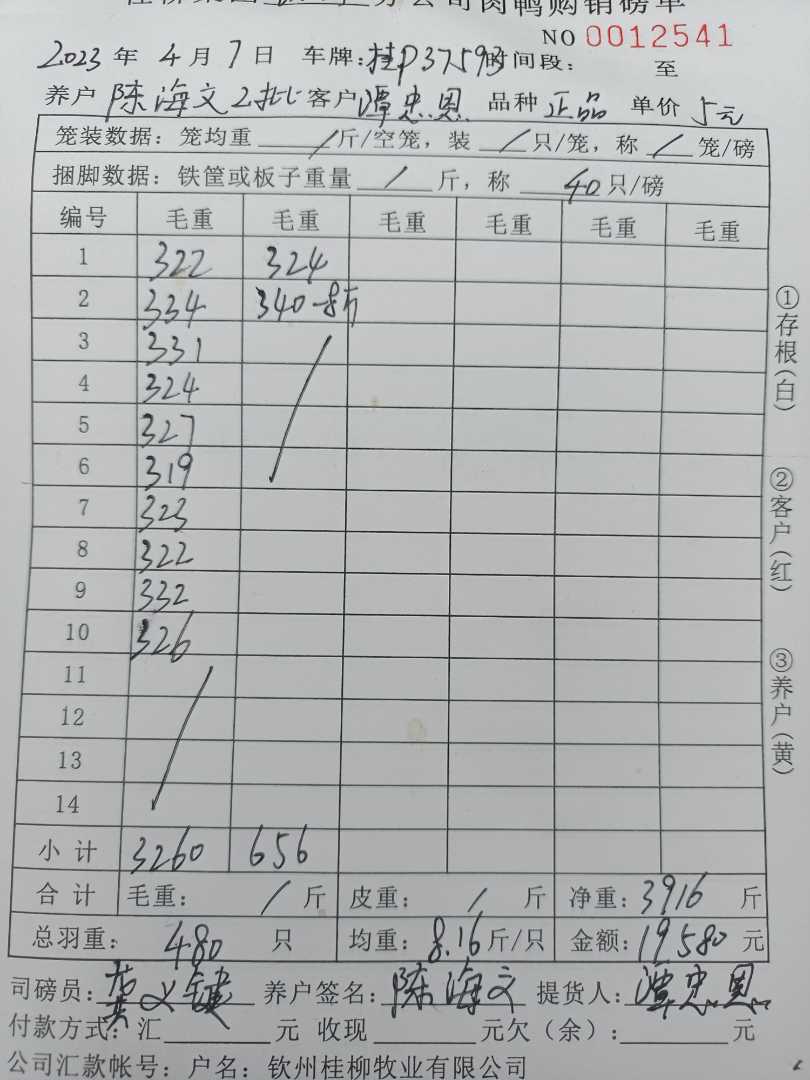 分公司肉鸭购销磅单
NO 0012541
2023年4月7日 车牌:桂P37593时间段: 至
养户 陈海文2批 客户 潭忠恩 品种 正品 单价 5元
笼装数据:笼均重 / 斤/空笼,装 / 只/笼,称 / 笼/磅
捆脚数据:铁筐或板子重量 / 斤,称 40只/磅
编号 毛重 毛重 毛重 毛重 毛重 毛重
1 322 324
2 334 340-8斤
3 331
4 324
5 327
6 319
7 323
8 322
9 332
10 326
11
12
13
14
小计 3260 656
合计 毛重: / 斤 皮重: / 斤 净重:3916 斤
总羽重: 480 只 均重:8.16斤/只 金额:19580元
司磅员:黄义键 养户签名:陈海文 提货人:潭忠恩
付款方式:汇 元 收现 元欠(余): 元
公司汇款帐号:户名:钦州桂柳牧业有限公司
①存根(白)
②客户(红)
③养户(黄)